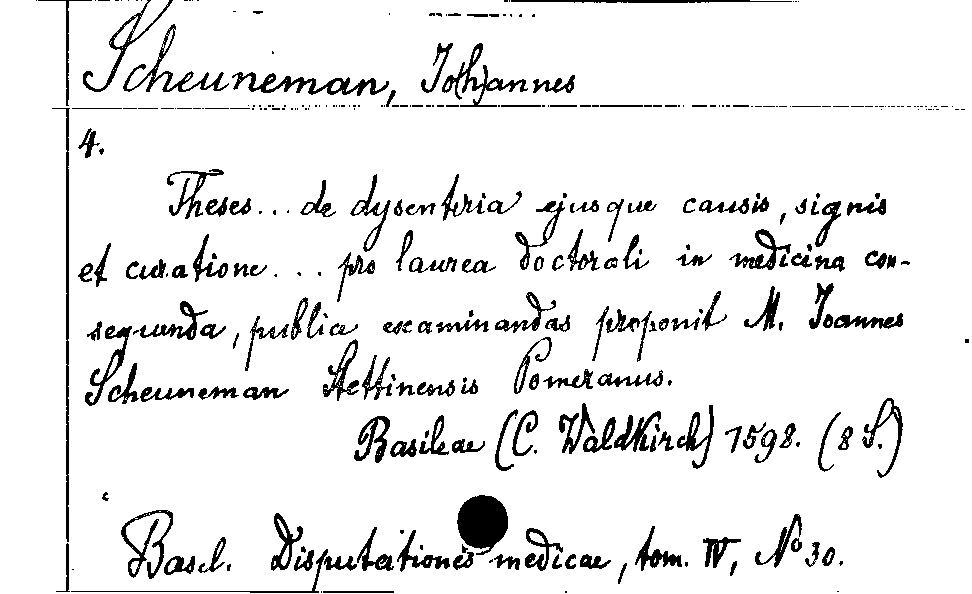 Scheuneman, Jo(h)annes
4.
Theses... de dysenteria ejusque causis, signis
et curatione... pro laurea doctorali in medicina con-
sequenda, publice examinandas proponit M. Joannes
Scheuneman Stettinensis Pomeranus.
Basileae (C. Waldkirch) 1598. (8 S.)
Basel. Disputationes medicae, tom. IV, No 30.